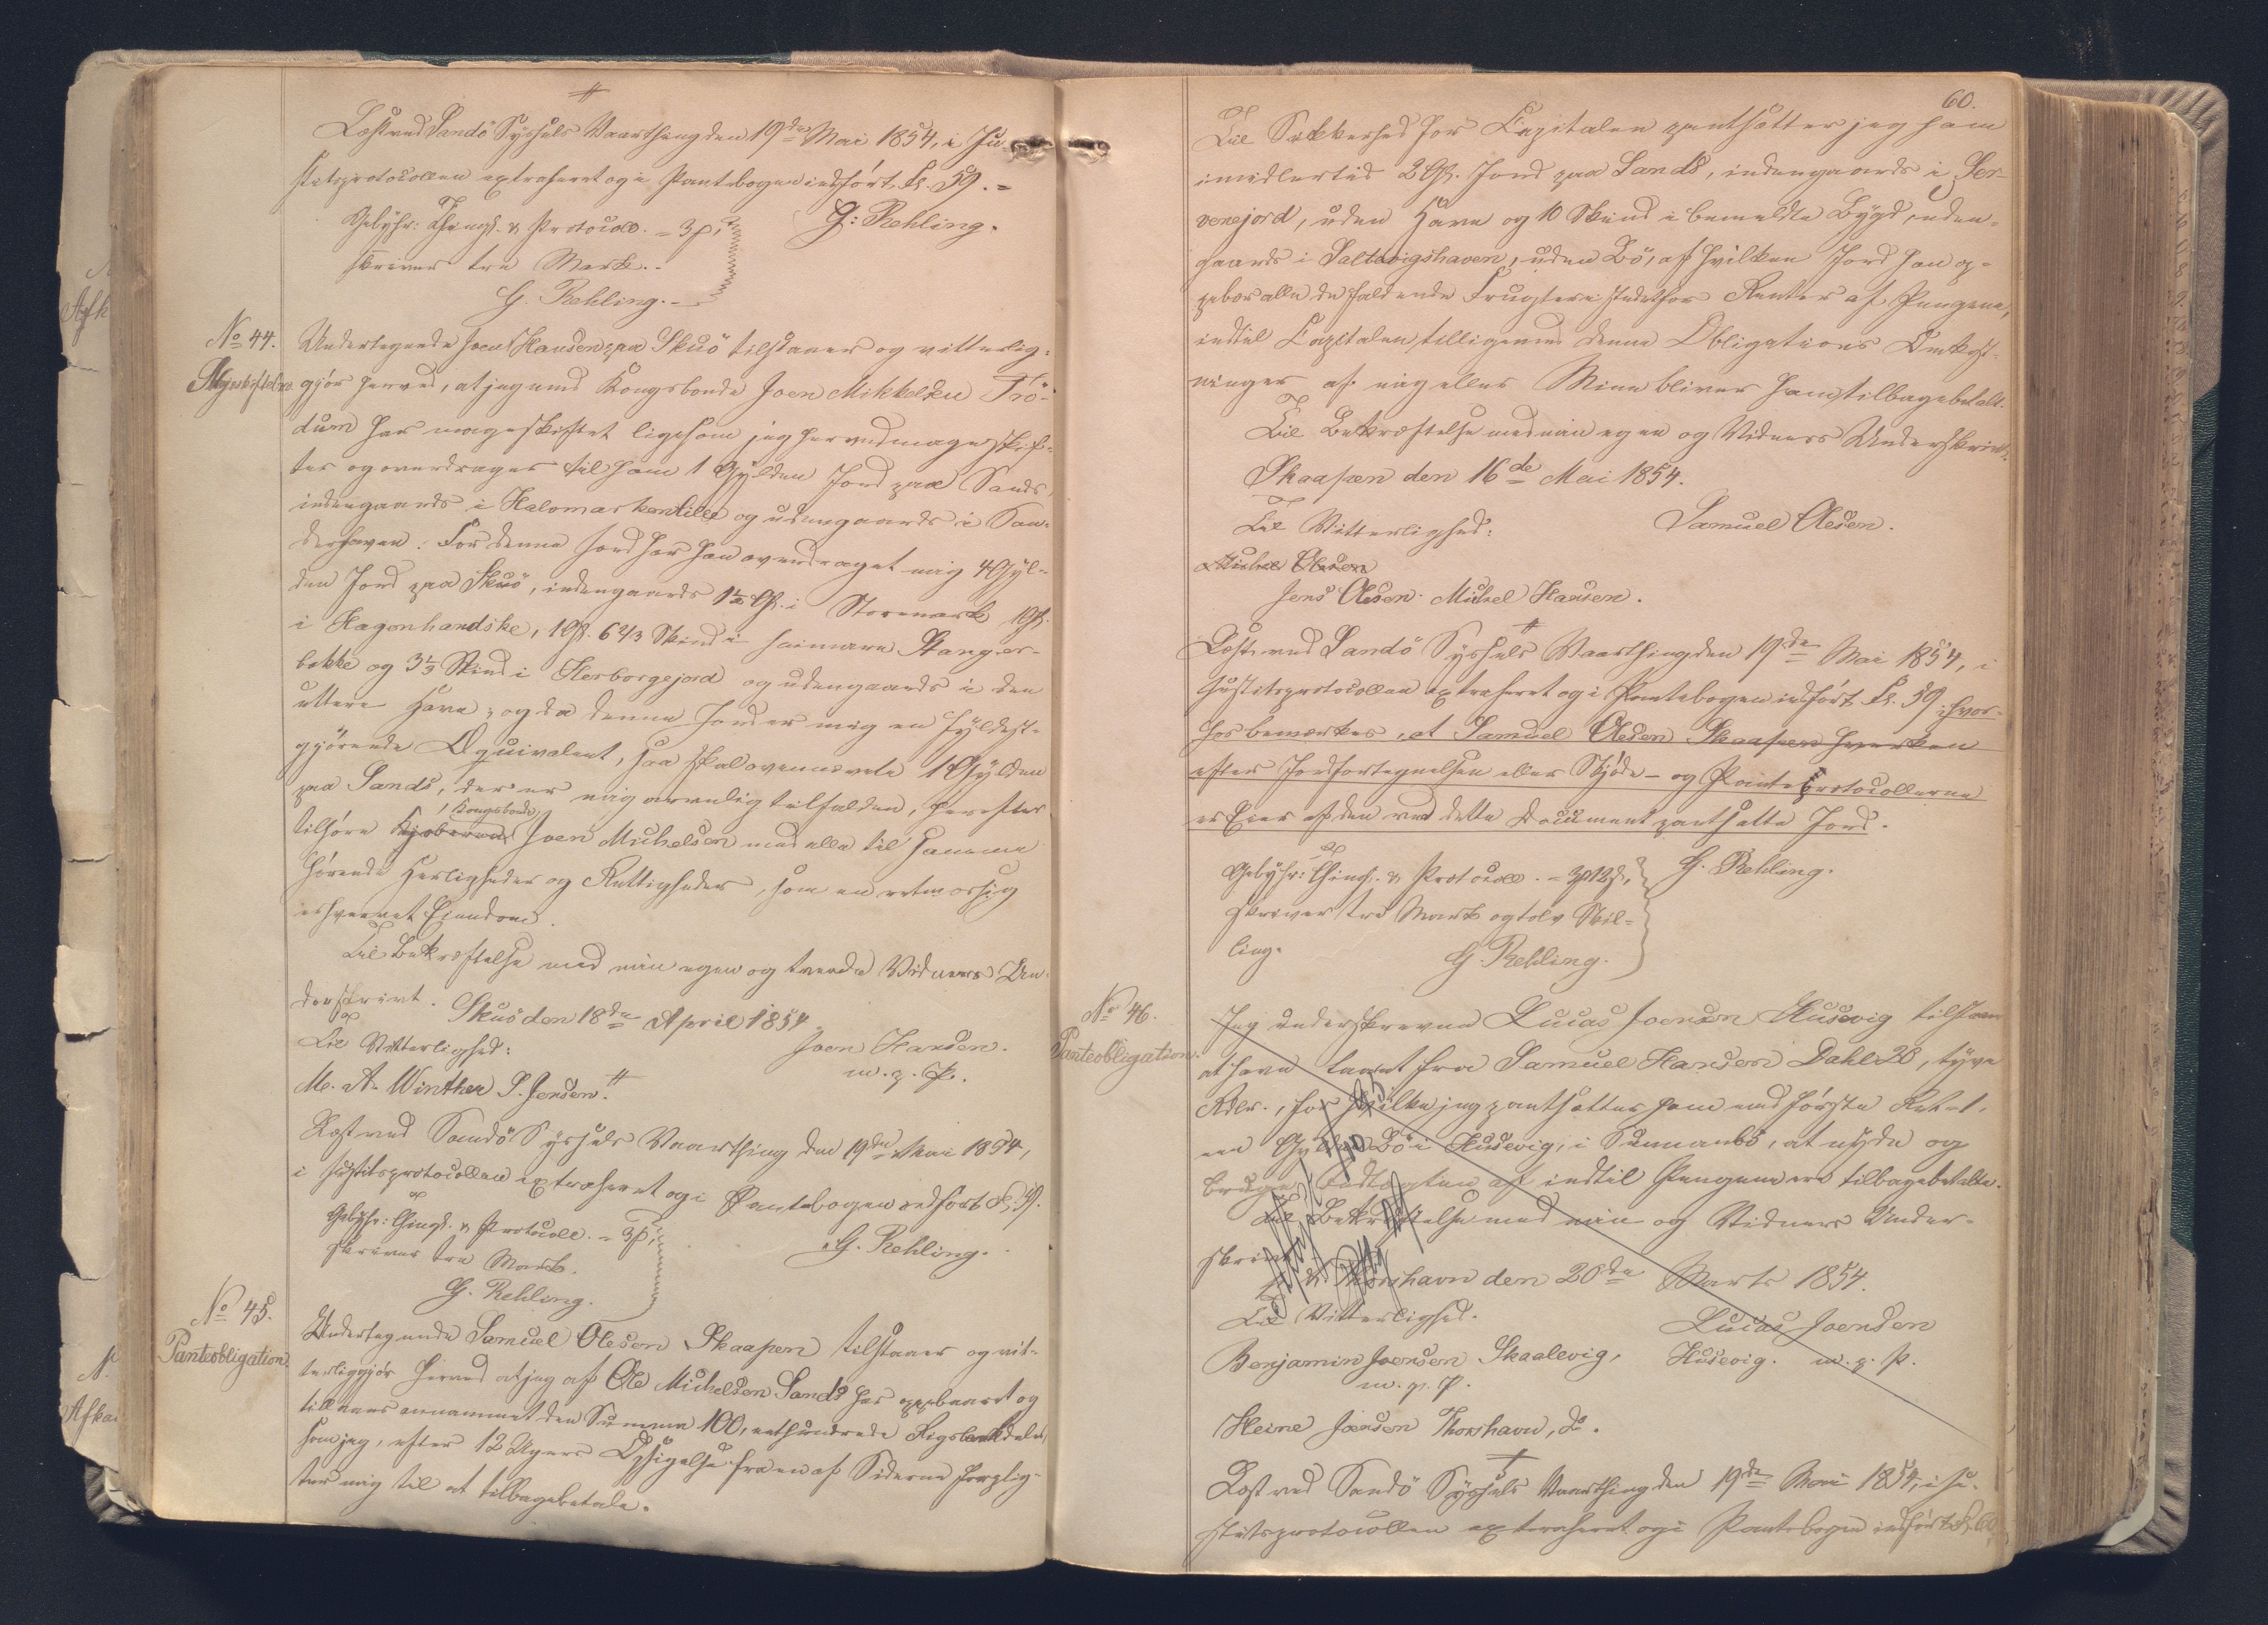 Læst ved Sandö Syssels Vaarthing den 19de Mai 1854, i Ju-
stitsprotocollen extraheret og i Pantebogen indfört Fl. 59. =
Gebyhr: Thingl. & Protocoll. = 3 ß,
skriver tre Mark. -
G: Rehling.
G. Rehling. -
No 44.
Undertegnede Joen Hansen paa Skuö tilstaaer og vitterlig-
Mageskiftebrev
gjör herved, at jeg med Kongsbonde Joen Mikkelsen Trö-
dum har mageskiftet ligesom jeg herved mageskif-
ter og overdrager til ham 1 Gylden Jord paa Sands,
indengaards i Halomarkentille og udengaards i San-
derhaven. For denne Jord har han overdraget mig 4 Gyl-
den Jord paa Skuö, indengaards 1½ Gl. i Storemark, 1 Gl.
i Hagenhandske, 1 Gl. 6 2/3 Skind i Heimare Stanger-
bakke og 3⅓ Skind i Herborgejord og udengaards i den
yttere Have; og da denne Jord er mig en fyldest-
gjörende Æquivalent, saa skal ovennævnte 1 Gylden
paa Sands, der er mig arvelig tilfalden, herefter
Kongsbonde
tilhöre Joen Michelsen med alle til samme
hörende Herligheder og Rettigheder, som en retmæssig
erhvervet Eiendom.
Til Bekræftelse med min egen og tvende Vidners Un-
derskrivt.
Skuö den 18de April 1854
Til Vitterlighed:
Joen Hansen.
m. p. P.
M. A. Winther S. Jensen.
Læst ved Sandö Syssels Vaarthing den 19de Mai 1854,
i Justitsprotocollen extraheret og i Pantebogen indfört Fl. 59.
Gebyhr: Thingl. & Protocoll. = 3 ß,
skriver tre Mark.
G. Rehling.
G. Rehling.
No 45.
Undertegnede Samuel Olesen Skaapen tilstaaer og vit-
Panteobligation
terliggjör herved at jeg af Ole Michelsen Sands har oppebaaret og
tillaans annammet den Summa 100, eethundrede Rigsbankdaler,
som jeg, efter 12 Ugers Opsigelse fra en af Siderne forplig-
ter mig til at tilbagebetale.
60.
Til Sikkerhed for Capitalen pantsætter jeg ham
imidlertid 2 Gl. Jord paa Sands, indengaards i Ser-
venejord, uden Have og 10 Skind i bemeldte Bygd, inden-
gaards i Saltvigshaven, uden Bö, af hvilken Jord han op-
pebær alle de faldende Frugter i stedetfor Renter af Pengene,
indtil Capitalen tilligemed denne Obligations Omkost-
ninger af mig eller Mine bliver ham tilbagebetalt.
Til Bekræftelse med min egen og Vidners Underskrivt.
Skaapen den 16de Mai 1854.
Til Vitterlighed:
Samuel Olesen.
Michel Olesen
Jens Olesen. Michel Hansen.
Læst ved Sandö Syssels Vaarthing den 19de Mai 1854, i
Justitsprotocollen extraheret og i Pantebogen indfört Fl. 59; hvor-
hos bemærkes, at Samuel Olesen Skaapen hverken
efter Jordfortegnelsen eller Skjöde- og Panteprotocollerne
er Eier af den ved dette Document pantsatte Jord.
Gebyhr: Thingl. & Protocoll. = 3 ß 12 s,
G. Rehling.
skriver tre Mark og tolv Skil-
ling.
G. Rehling.
No 46.
Jeg underskrevne Lucas Joensen Husevig tilstaaer
Panteobligation.
at have laant fra Samuel Hansen Dahl 20, tyve
Rdlr., for hvilke jeg pantsætter ham med förste Ret = 1,
een Gylden Bö i Husevig, i Sunnanbö, at nyde og
bruge Indtægten af indtil Pengene ere tilbagebetalte.
Til Bekræftelse med min og Vidners Under-
skrivt
Thorshavn den 20de Marts 1854.
Til Vitterlighed.
Lucas Joensen
Benjamin Joensen Skaalevig,
Husevig. m. p. P.
m. p. P.
Heine Joensen Thorshavn, do.
Læst ved Sandö Syssels Vaarthing den 19de Mai 1854, i Ju-
stitsprotocollen extraheret og i Pantebogen indfört Fl. 60